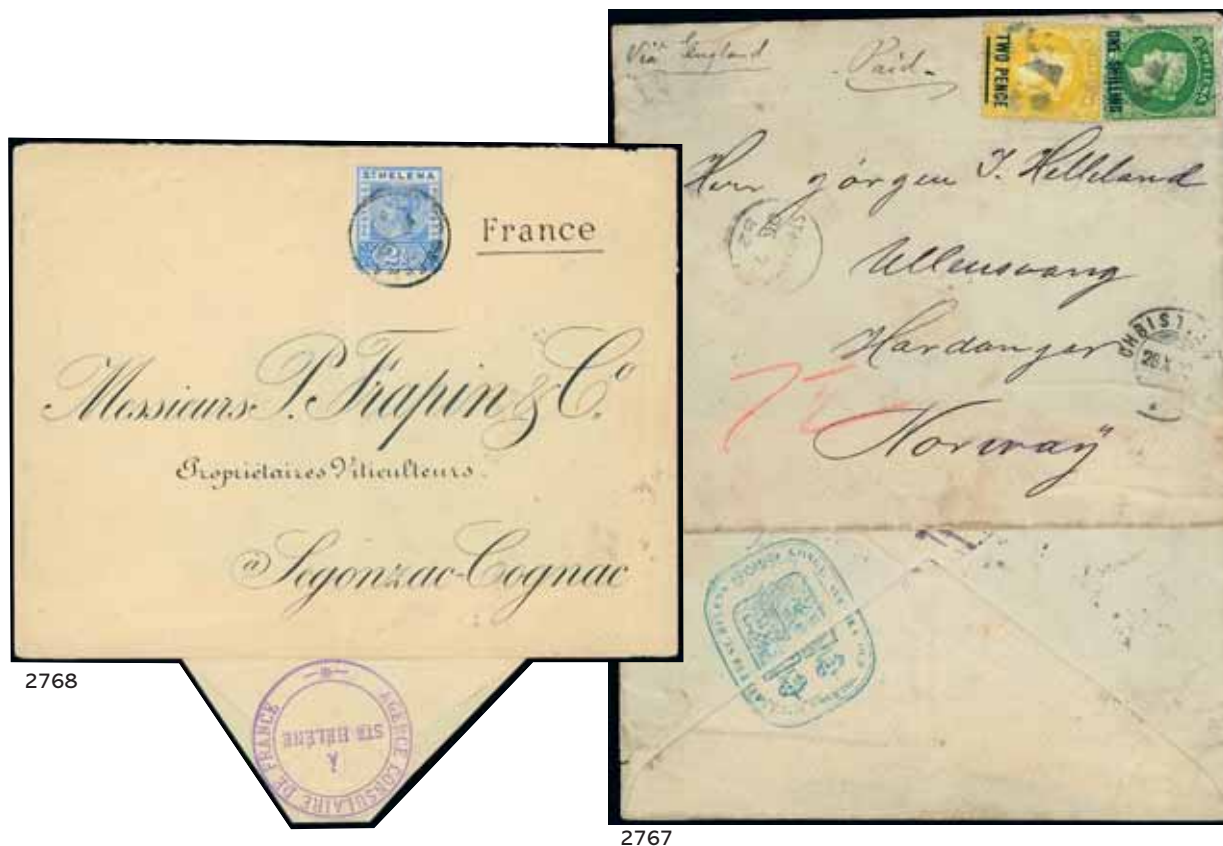 ST HELENA
2½
France
Messieurs P. Frapin & Cº
Propriétaires Viticulteurs.
à Segonzac-Cognac
AGENCE CONSULAIRE DE FRANCE
À
STE HÉLÈNE
2768
Via England
Paid
TWO PENCE
ONE SHILLING
ST HELENA
Herr Jörgen I. Helleland
Ullensvang
Hardanger
Norway
CHRIST
2767